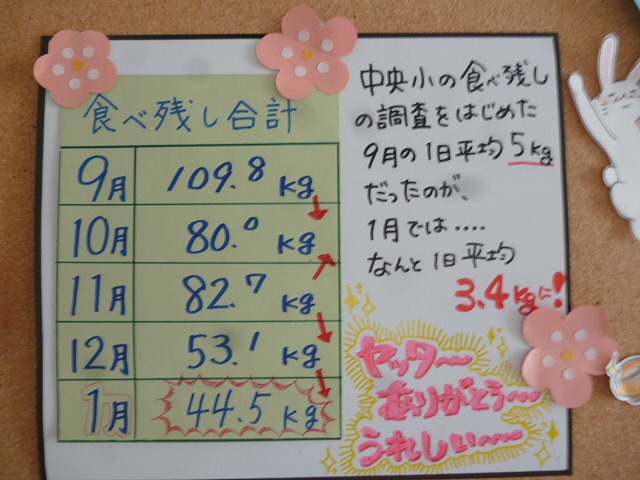 食べ残し合計
9月 109.8 kg
10月 80.0 kg
11月 82.7 kg
12月 53.1 kg
1月 44.5 kg
中央小の食べ残し
の調査をはじめた
9月の1日平均5kg
だったのが、
1月では‥‥
なんと1日平均
3.4kgに!
ヤッター〜
ありがとう〜
うれしい〜